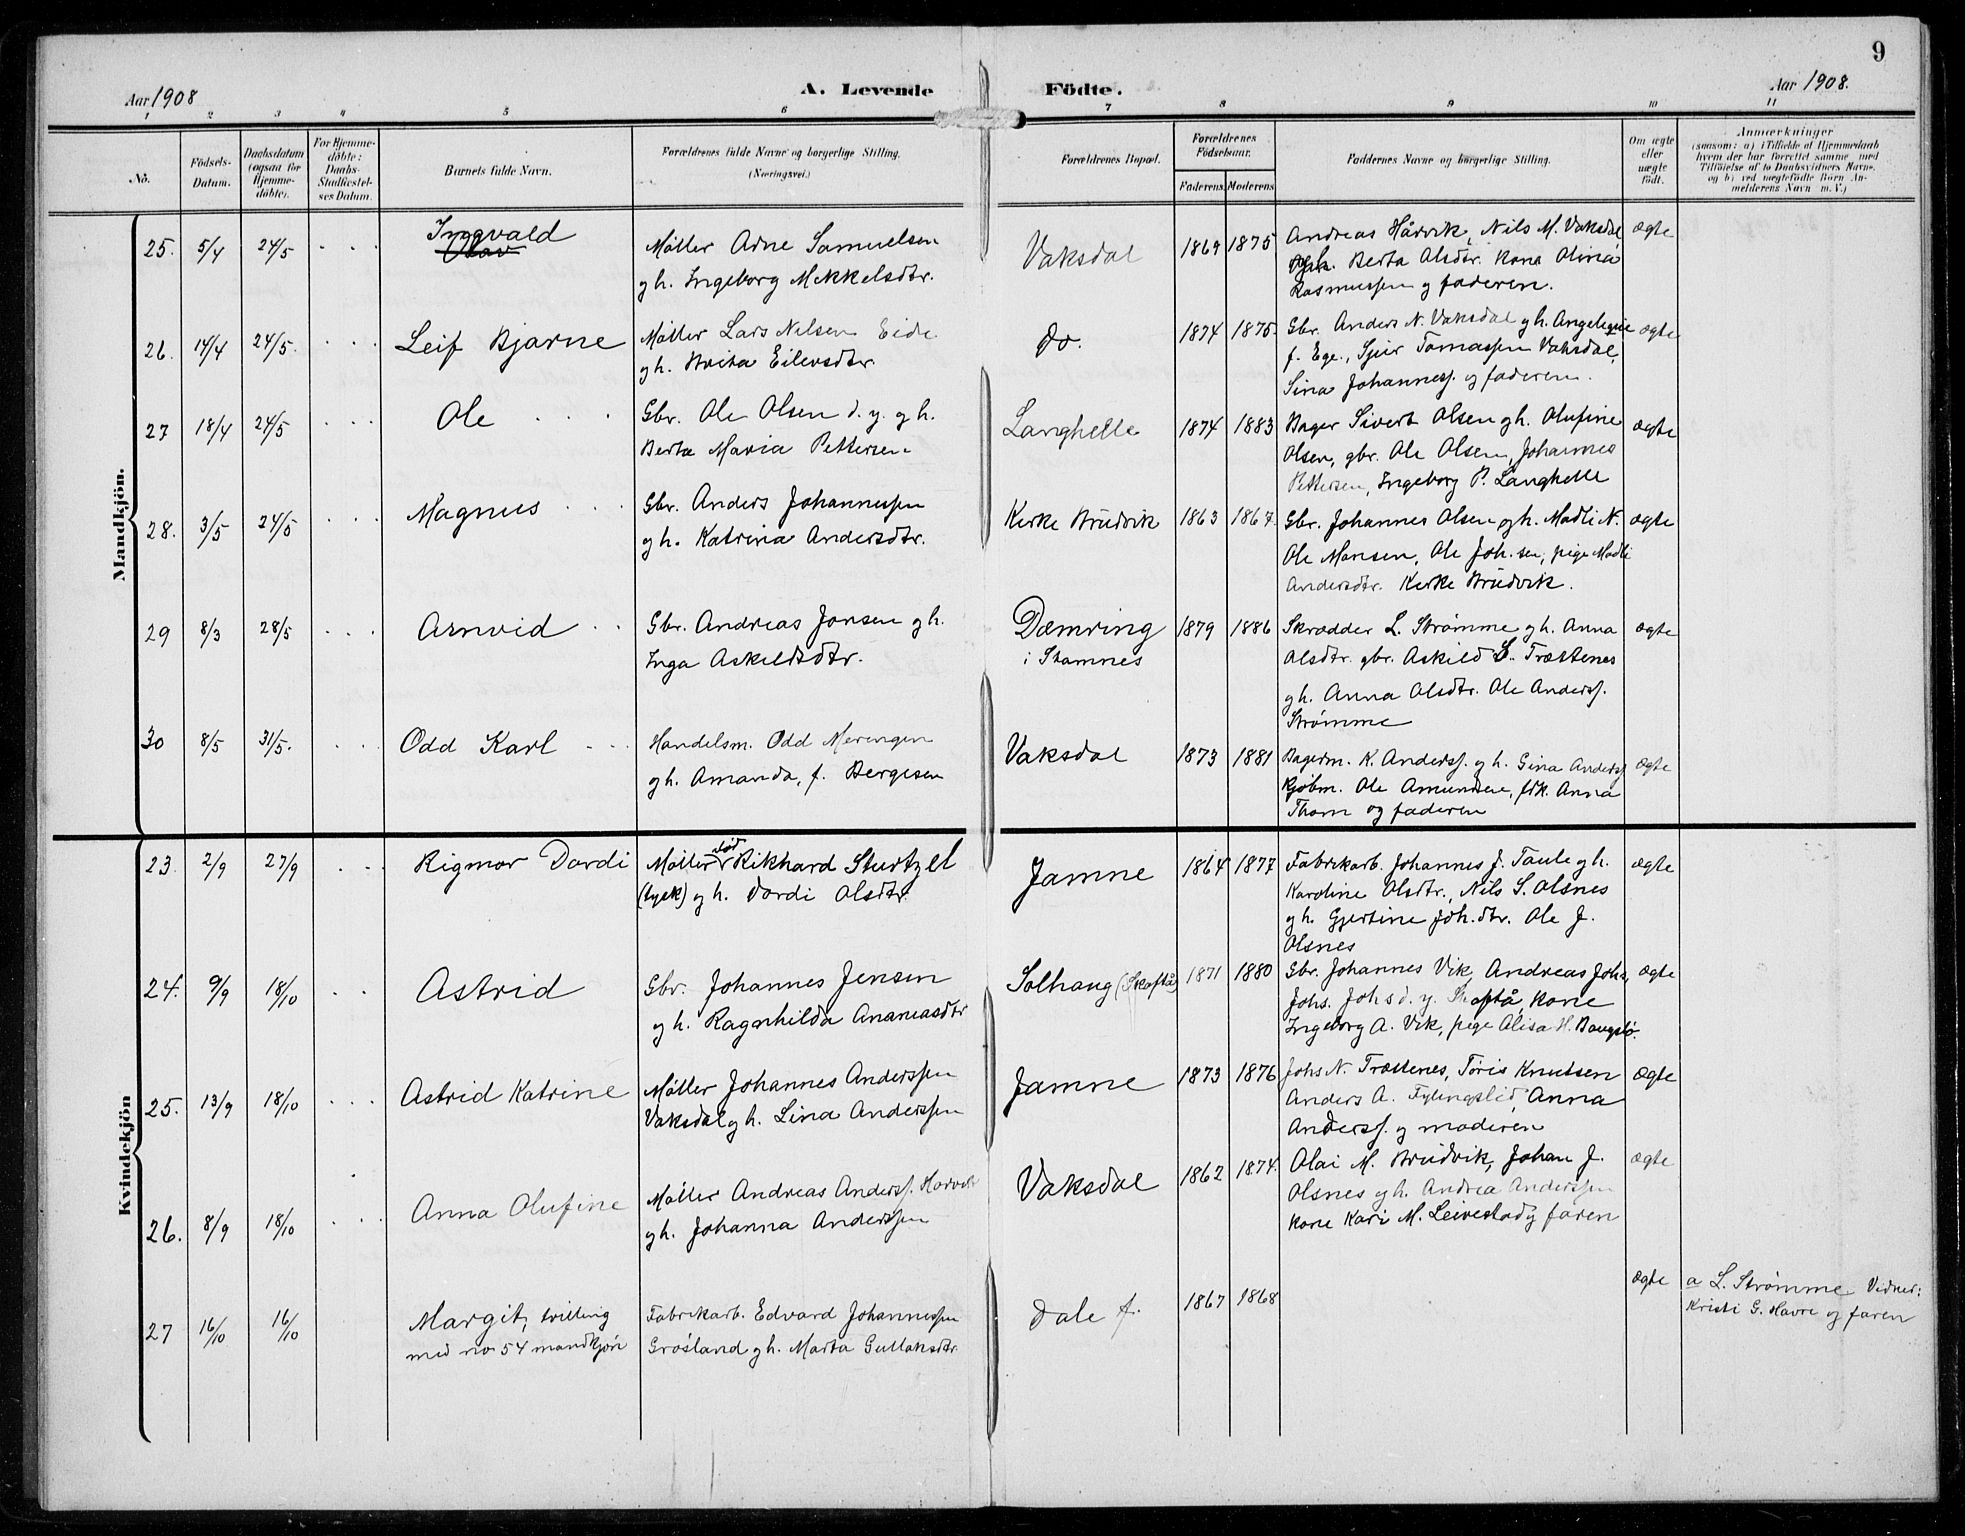 9
Aar 1908
A. Levende
Födte.
Aar 1908.
1 2 3 4 5 6 7 8 9 10 11
No.
Födsels-
Datum.
Daabsdatum
(ogsaa for
Hjemme-
döbte).
For Hjemme-
döbte:
Daabs-
Stadfæstel-
ses Datum.
Barnets fulde Navn.
Forældrenes fulde Navne og borgerlige Stilling.
(Næringsvei.)
Forældrenes Bopæl.
Forældrenes
Födselsaar.
Faderens. Moderens
Faddernes Navne og borgerlige Stilling.
Om ægte
eller
uægte
født.
Anmærkninger
(saasom: a) i Tilfælde af Hjemmedaab
hvem der har forrettet samme med
Tilföielse af to Daabsvidners Navne,
og b) ved uægtefödte Börn An-
melderens Navn m. V.)
Mandkjön.
25. 5/4 24/5 Ingvald
Olav
Møller Arne Samuelsen
gh. Ingeborg Mikkelsdtr.
Vaksdal 1869 1875
Andreas Hårvik, Nils M. Vaksdal
Berta Olsdtr. kona Olina
Rasmussen og faderen.
ægte
26. 14/4 24/5. Leif Bjarne
Møller Lars Nilsen Eide
gh. Brita Eilevsdtr.
do. 1874 1875.
Gbr. Anders N. Vaksdal gh. Angelique
f. Ege., Sjur Tomassen Vaksdal,
Sina Johanness. og faderen.
ægte
27 18/4 24/5 Ole
Gbr. Ole Olsen d. y. gh.
Berta Maria Pettersen
Langhelle 1874 1883
Bager Sivert Olsen gh. Olufine
Olsen, gbr. Ole Olsen, Johannes
Pettersen, Ingeborg P. Langhelle
ægte
28. 3/5 24/5 Magnus
Gbr. Anders Johannessen
gh. Katrina Andersdtr.
Kirke Brudvik 1863 1867.
Gbr. Johannes Olsen gh. Madli N.
Ole Monsen, Ole Joh.sen, pige Madli
Andersdtr. Kirke Brudvik.
ægte
29 8/3 28/5 Arnvid
Gbr. Andreas Jonsen gh.
Inga Askildsdtr.
Dæmring
i Stamnes
1879 1886
Skrædder L. Strømme gh. Anna
Olsdtr. gbr. Askild L. Trættenes
gh. Anna Olsdtr. Ole Anderss.
Strømme
ægte
30 8/5 31/5. Odd Karl
Handelsm. Odd Meringen
gh. Amanda, f. Bergesen
Vaksdal 1873 1881
Bagerm. K. Anderss. gh. Gina Anderss
Kjøbm. Ole Amundsen, frk. Anna
Thom og faderen
ægte
Kvindekjön
23. 2/9 27/9 Rigmor Dordi
Møller Rikhard Sturtzel
(tysk) gh. Dordi Olsdtr.
Jamne 1864 1877
Fabrikarb. Johannes J. Taule gh.
Karoline Olsdtr., Nils S. Olsnes
gh. Gjertine Joh.dtr. Ole J.
Olsnes
ægte
24. 9/9 18/10 Astrid
Gbr. Johannes Jensen
gh. Ragnhilda Ananiasdtr
Solhaug (Skaftå) 1871 1880
Gbr. Johannes Vik, Andreas Johs,
Johs. Johs d. y. Skaftå, kone
Ingeborg A. Vik, pige Alisa H. Baugstø.
ægte
25. 13/9 18/10 Astrid Katrine
Møller Johannes Anderssen
Vaksdal gh. Lina Anderssen
Jamne 1873 1876
Johs N. Trættenes, Tøris Knutsen
Anders A. Fylingslid, Anna
Anderss. og moderen
ægte
26. 8/9 18/10 Anna Olufine
Møller Andreas Anderss. Horvik
gh. Johanna Anderssen
Vaksdal 1862 1874.
Olai M. Brudvik, Johan J.
Olsnes gh. Andrea Anderssen
kone Kari M. Leirestad og faren
ægte
27 16/10 16/10 Margit, tvilling
med no 54 mandkjøn
Fabrikarb. Edvard Johannessen
Grøsland gh. Marta Gullaksdtr.
Dale f. 1867 1868
ægte
a L. Strømme Vidner:
Kristi G. Havre og faren